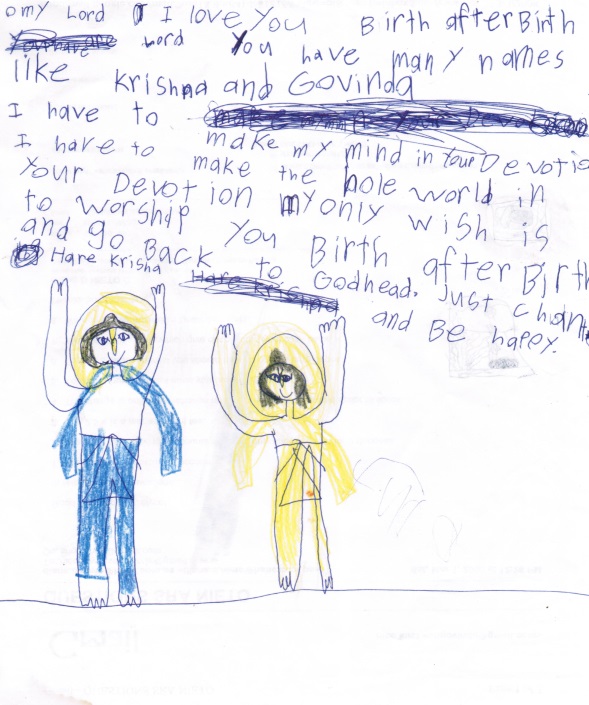 omy Lord I love You Birth afterBirth
You have are Lord You have many names
like Krishna and Govinda
I have to
I have to make my mind in Your Devotio
Your Devotion make the hole world in
to worship my only wish is
and go Back You Birth after Birth
Hare Krisha Hare Krishna to Godhead. Just chant
and Be happy.